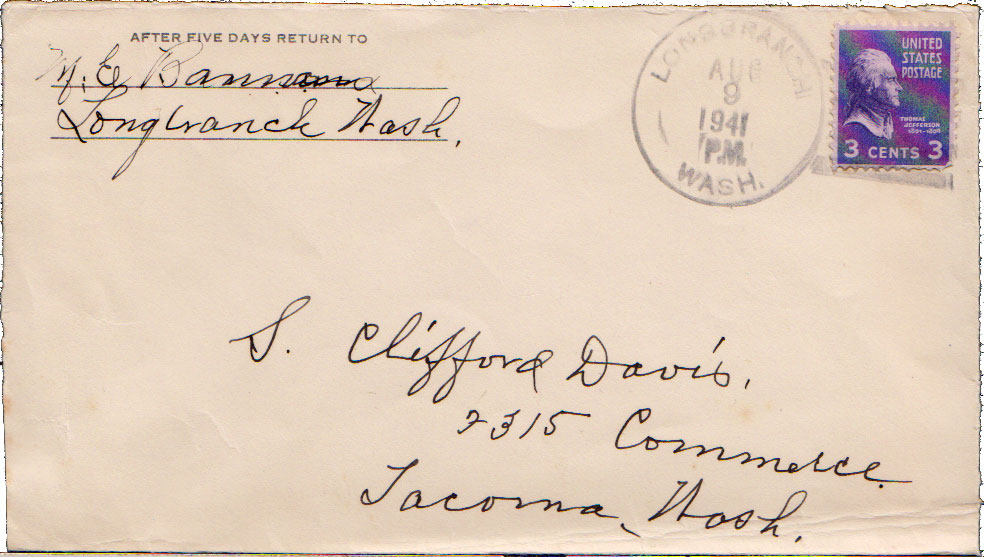 AFTER FIVE DAYS RETURN TO
M. E
Longbranch Wash.
LONGBRANCH
AUG
9
1941
P.M.
WASH.
UNITED
STATES
POSTAGE
THOMAS
JEFFERSON
1801-1809
3 CENTS 3
S. Clifford Davis.
2315 Commerce.
Tacoma, Wash.